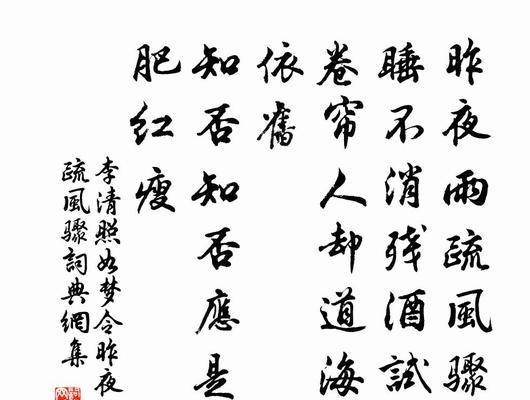 昨夜雨疏風驟
睡不消残酒試
卷帘人却道海
依舊
知否知否應是
肥红瘦
李清照如梦令昨夜
疏風驟詞典網集